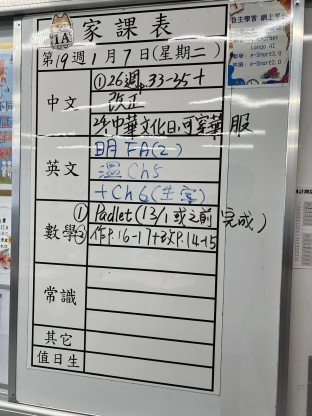 1A 家課表
第19週1月7日(星期二)
中文
①26週p.33-35+
改正
24/1中華文化日,可穿華服
英文
明 FA(2)
溫Ch5
+Ch6(生字)
數學
①Padlet(13/1或之前完成)
②作P.16-17+改P.14-15
常識
其它
值日生
自主學習 網上平台